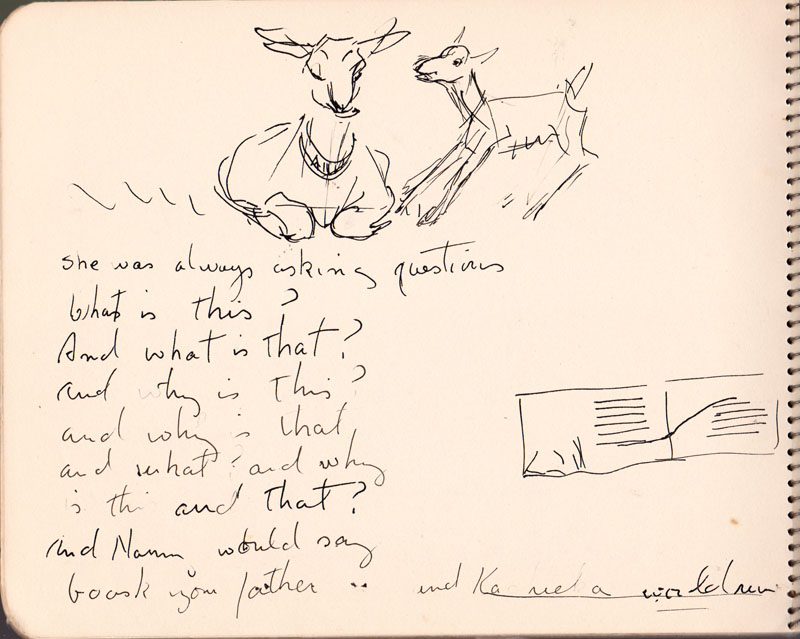 she was always asking questions
What is this?
And what is that?
and why is this?
and why is that
and what? and why
is this and that?
and would say
go ask your father .. and would run